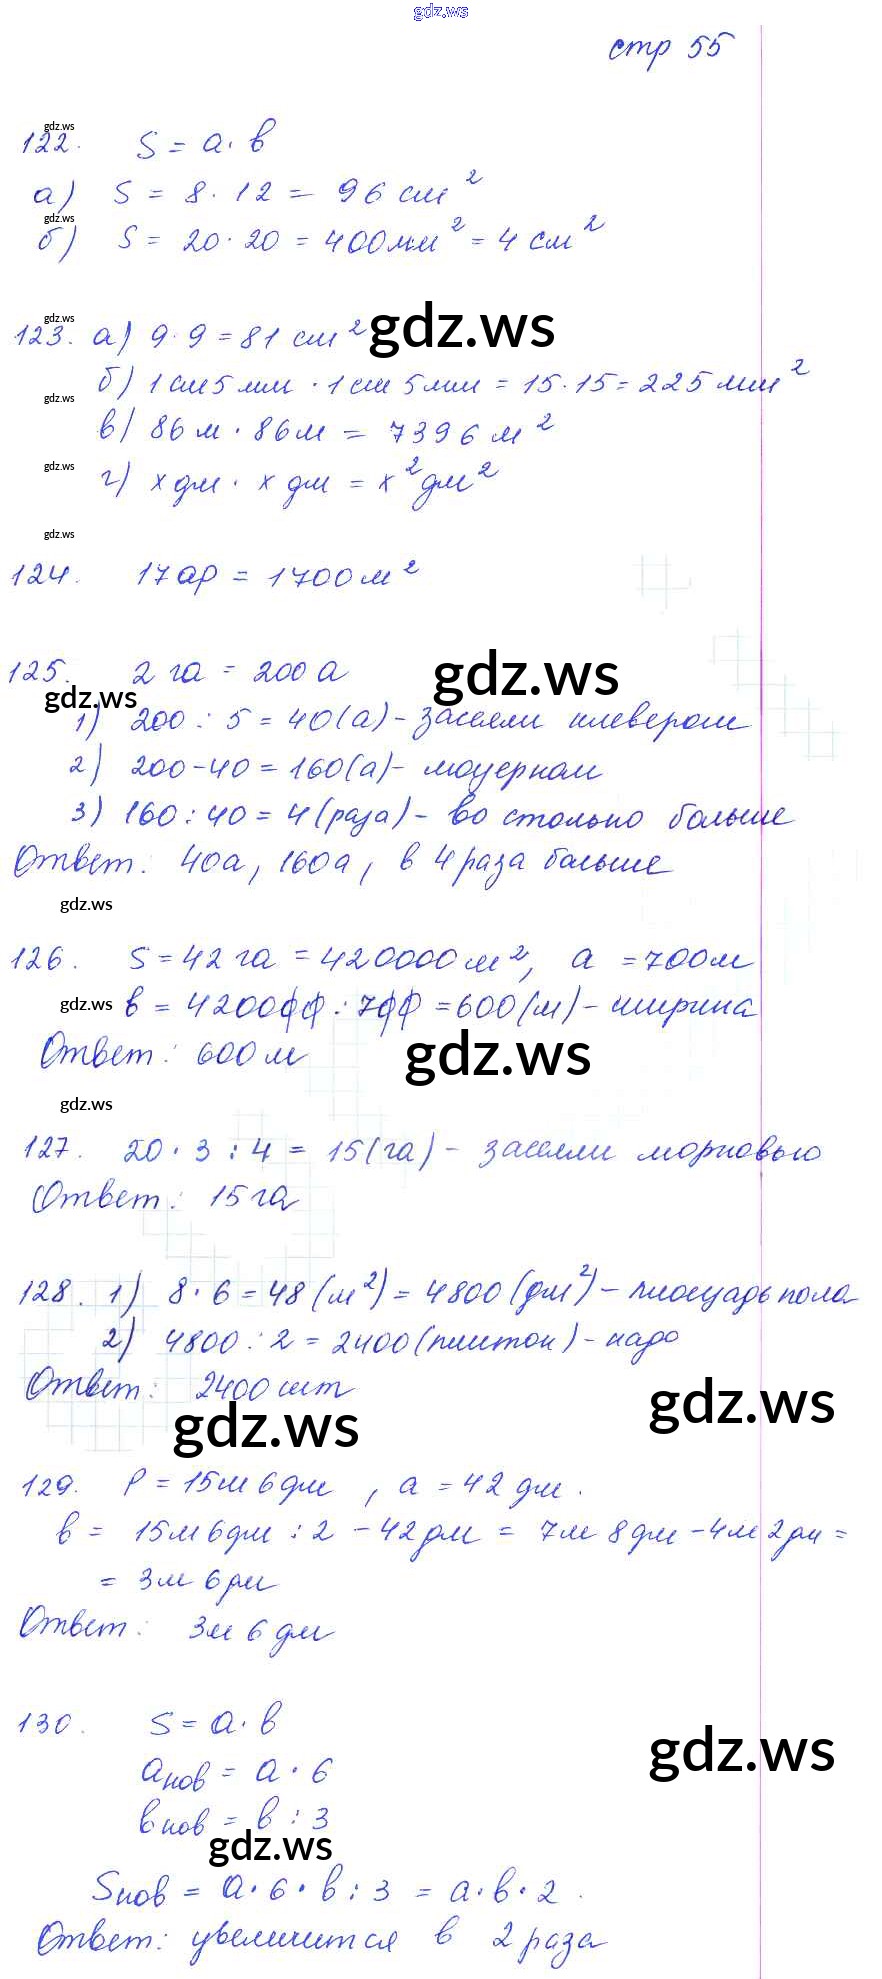 gdz.ws
стр 55
gdz.ws
122. S = a · b
а) S = 8 · 12 = 96 см²
gdz.ws
б) S = 20 · 20 = 400 мм² = 4 см²
gdz.ws
123. а) 9 · 9 = 81 см² gdz.ws
б) 1 см 5 мм · 1 см 5 мм = 15 · 15 = 225 мм²
gdz.ws
в) 86 м · 86 м = 7396 м²
gdz.ws
г) x дм · x дм = x² дм²
gdz.ws
124. 17 ар = 1700 м²
125. 2 га = 200 а gdz.ws
gdz.ws
1) 200 : 5 = 40 (а) - засеяли клевером
2) 200 - 40 = 160 (а) - люцерном
3) 160 : 40 = 4 (раза) - во столько больше
Ответ: 40а, 160а, в 4 раза больше
gdz.ws
126. S = 42 га = 420000 м², a = 700 м
gdz.ws b = 420000 : 700 = 600 (м) - ширина
Ответ: 600 м gdz.ws
gdz.ws
127. 20 · 3 : 4 = 15 (га) - засеяли морковью
Ответ: 15 га
128. 1) 8 · 6 = 48 (м²) = 4800 (дм²) - площадь пола
2) 4800 : 2 = 2400 (плиток) - надо
Ответ: 2400 шт gdz.ws
gdz.ws
129. P = 15 м 6 дм, a = 42 дм.
b = 15 м 6 дм : 2 - 42 дм = 7 м 8 дм - 4 м 2 дм =
= 3 м 6 дм
Ответ: 3 м 6 дм
130. S = a · b
gdz.ws
aнов = a · 6
bнов = b : 3
gdz.ws
Sнов = a · 6 · b : 3 = a · b · 2.
Ответ: увеличится в 2 раза